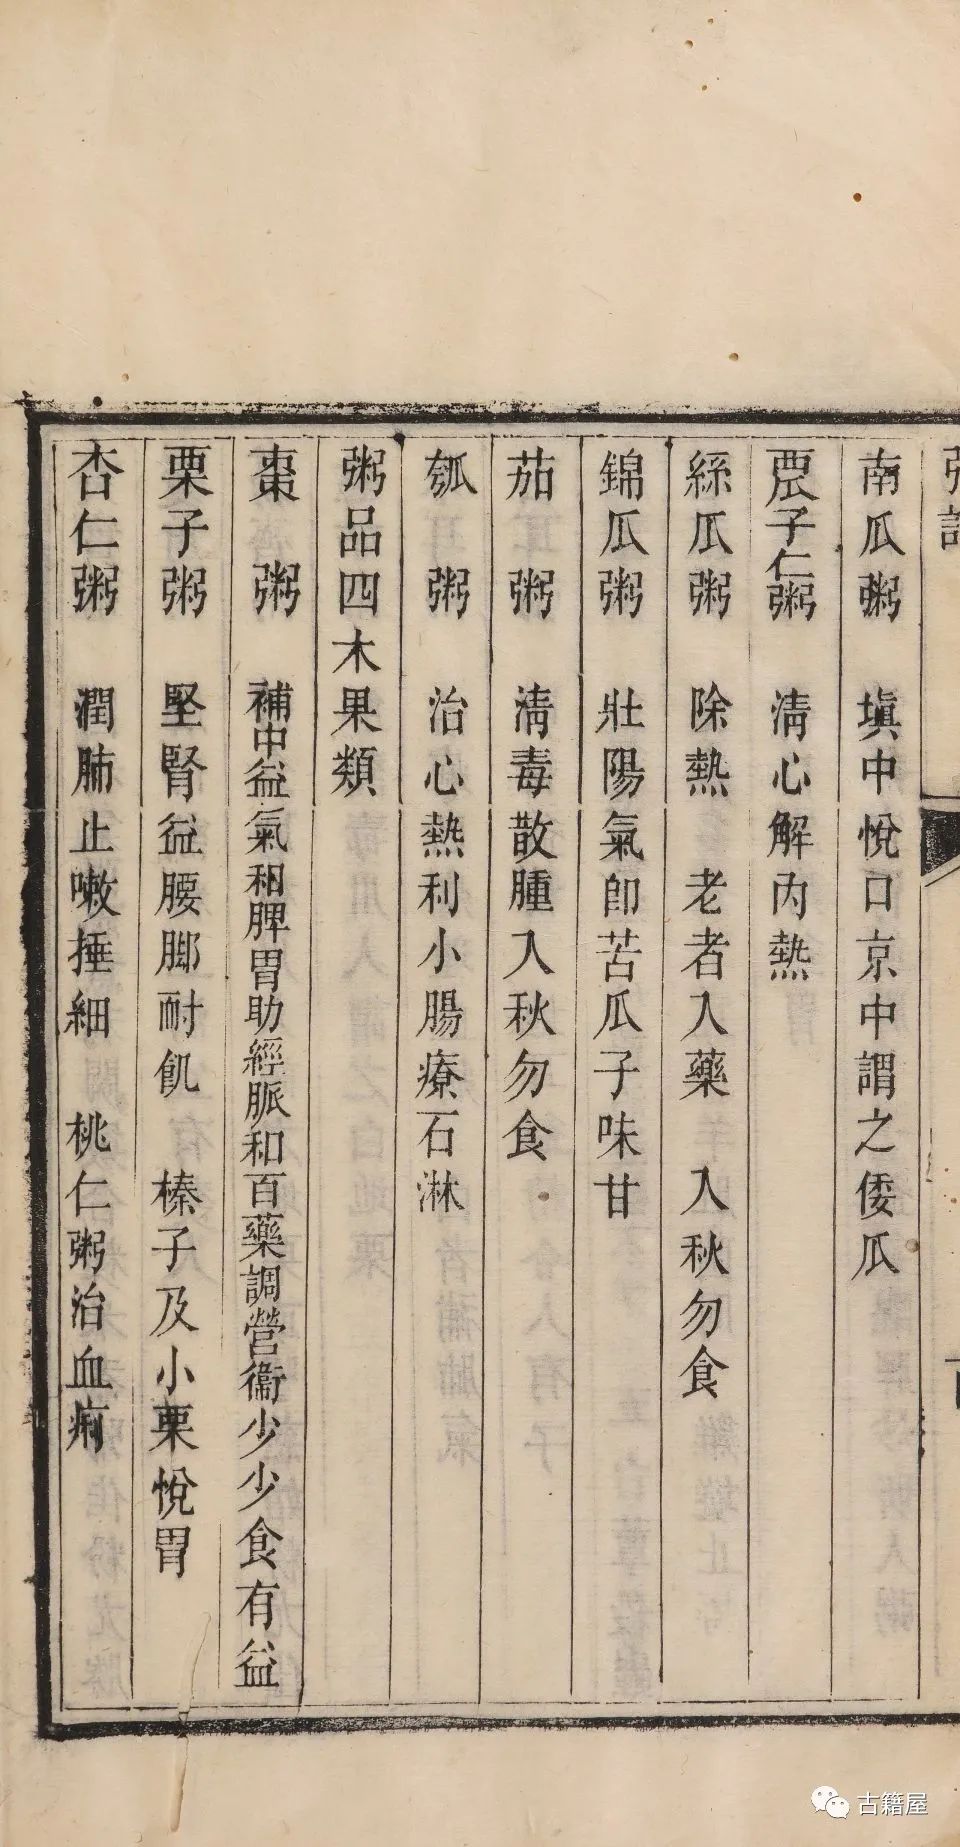 南瓜粥　填中悅口京中謂之倭瓜
子仁粥　清心解內熱
絲瓜粥　除熱　老者入藥　入秋勿食
錦瓜粥　壯陽氣卽苦瓜子味甘
茄粥　清毒散腫入秋勿食
瓠粥　治心熱利小腸療石淋
粥品四木果類
棗粥　補中益氣和脾胃助經脈和百藥調營衞少少食有益
栗子粥　堅腎益腰脚耐飢　榛子及小栗悅胃
杏仁粥　潤肺止嗽捶細　桃仁粥治血痢
古籍屋